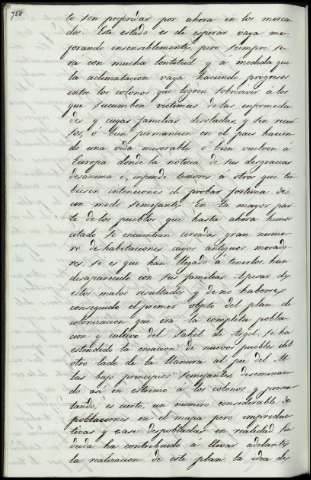 768
te son preferidas por ahora en los merca
dos. Este estado es de esperar vaya me
jorando insensiblemente pero siempre se
ra con mucha lentitud y a medida que
la aclimatacion vaya haciendo progresos
entre los colonos que logren sobrevivir a los
que sucumban victimas de las enfermeda
des y cuyas familias desoladas y sin recur
sos, ó bien permanecen en el pais hacien
do una vida miserable ó bien vuelven á
Europa donde la noticia de sus desgracias
desanima é infunde temores á otros que tu
biesen intenciones de probar fortuna de
un modo semejante. En la mayor par
te de los pueblos que hasta ahora hemos
citado se encuentran cerradas gran nume
ro de habitaciones cuyos antiguos morado
res si es que han llegado á tenerlos han
desaparecido con sus familias. Apesar de
estos malos resultados y de no haberse
conseguido el primer objeto del plan de
colonizacion que era la completa pobla
cion y cultivo del Sahel de Argel, se ha
estendido la creacion de nuevos pueblos del
otro lado de la llanura al pie del At
las bajo principios semejantes diseminan
do asi en estremo á los colonos y presen
tando, es cierto, un numero considerable de
poblaciones en el mapa pero improduc
tivas y casi despobladas en realidad. Sin
duda ha contribuido á llevar adelante
la realizacion de este plan la idea de